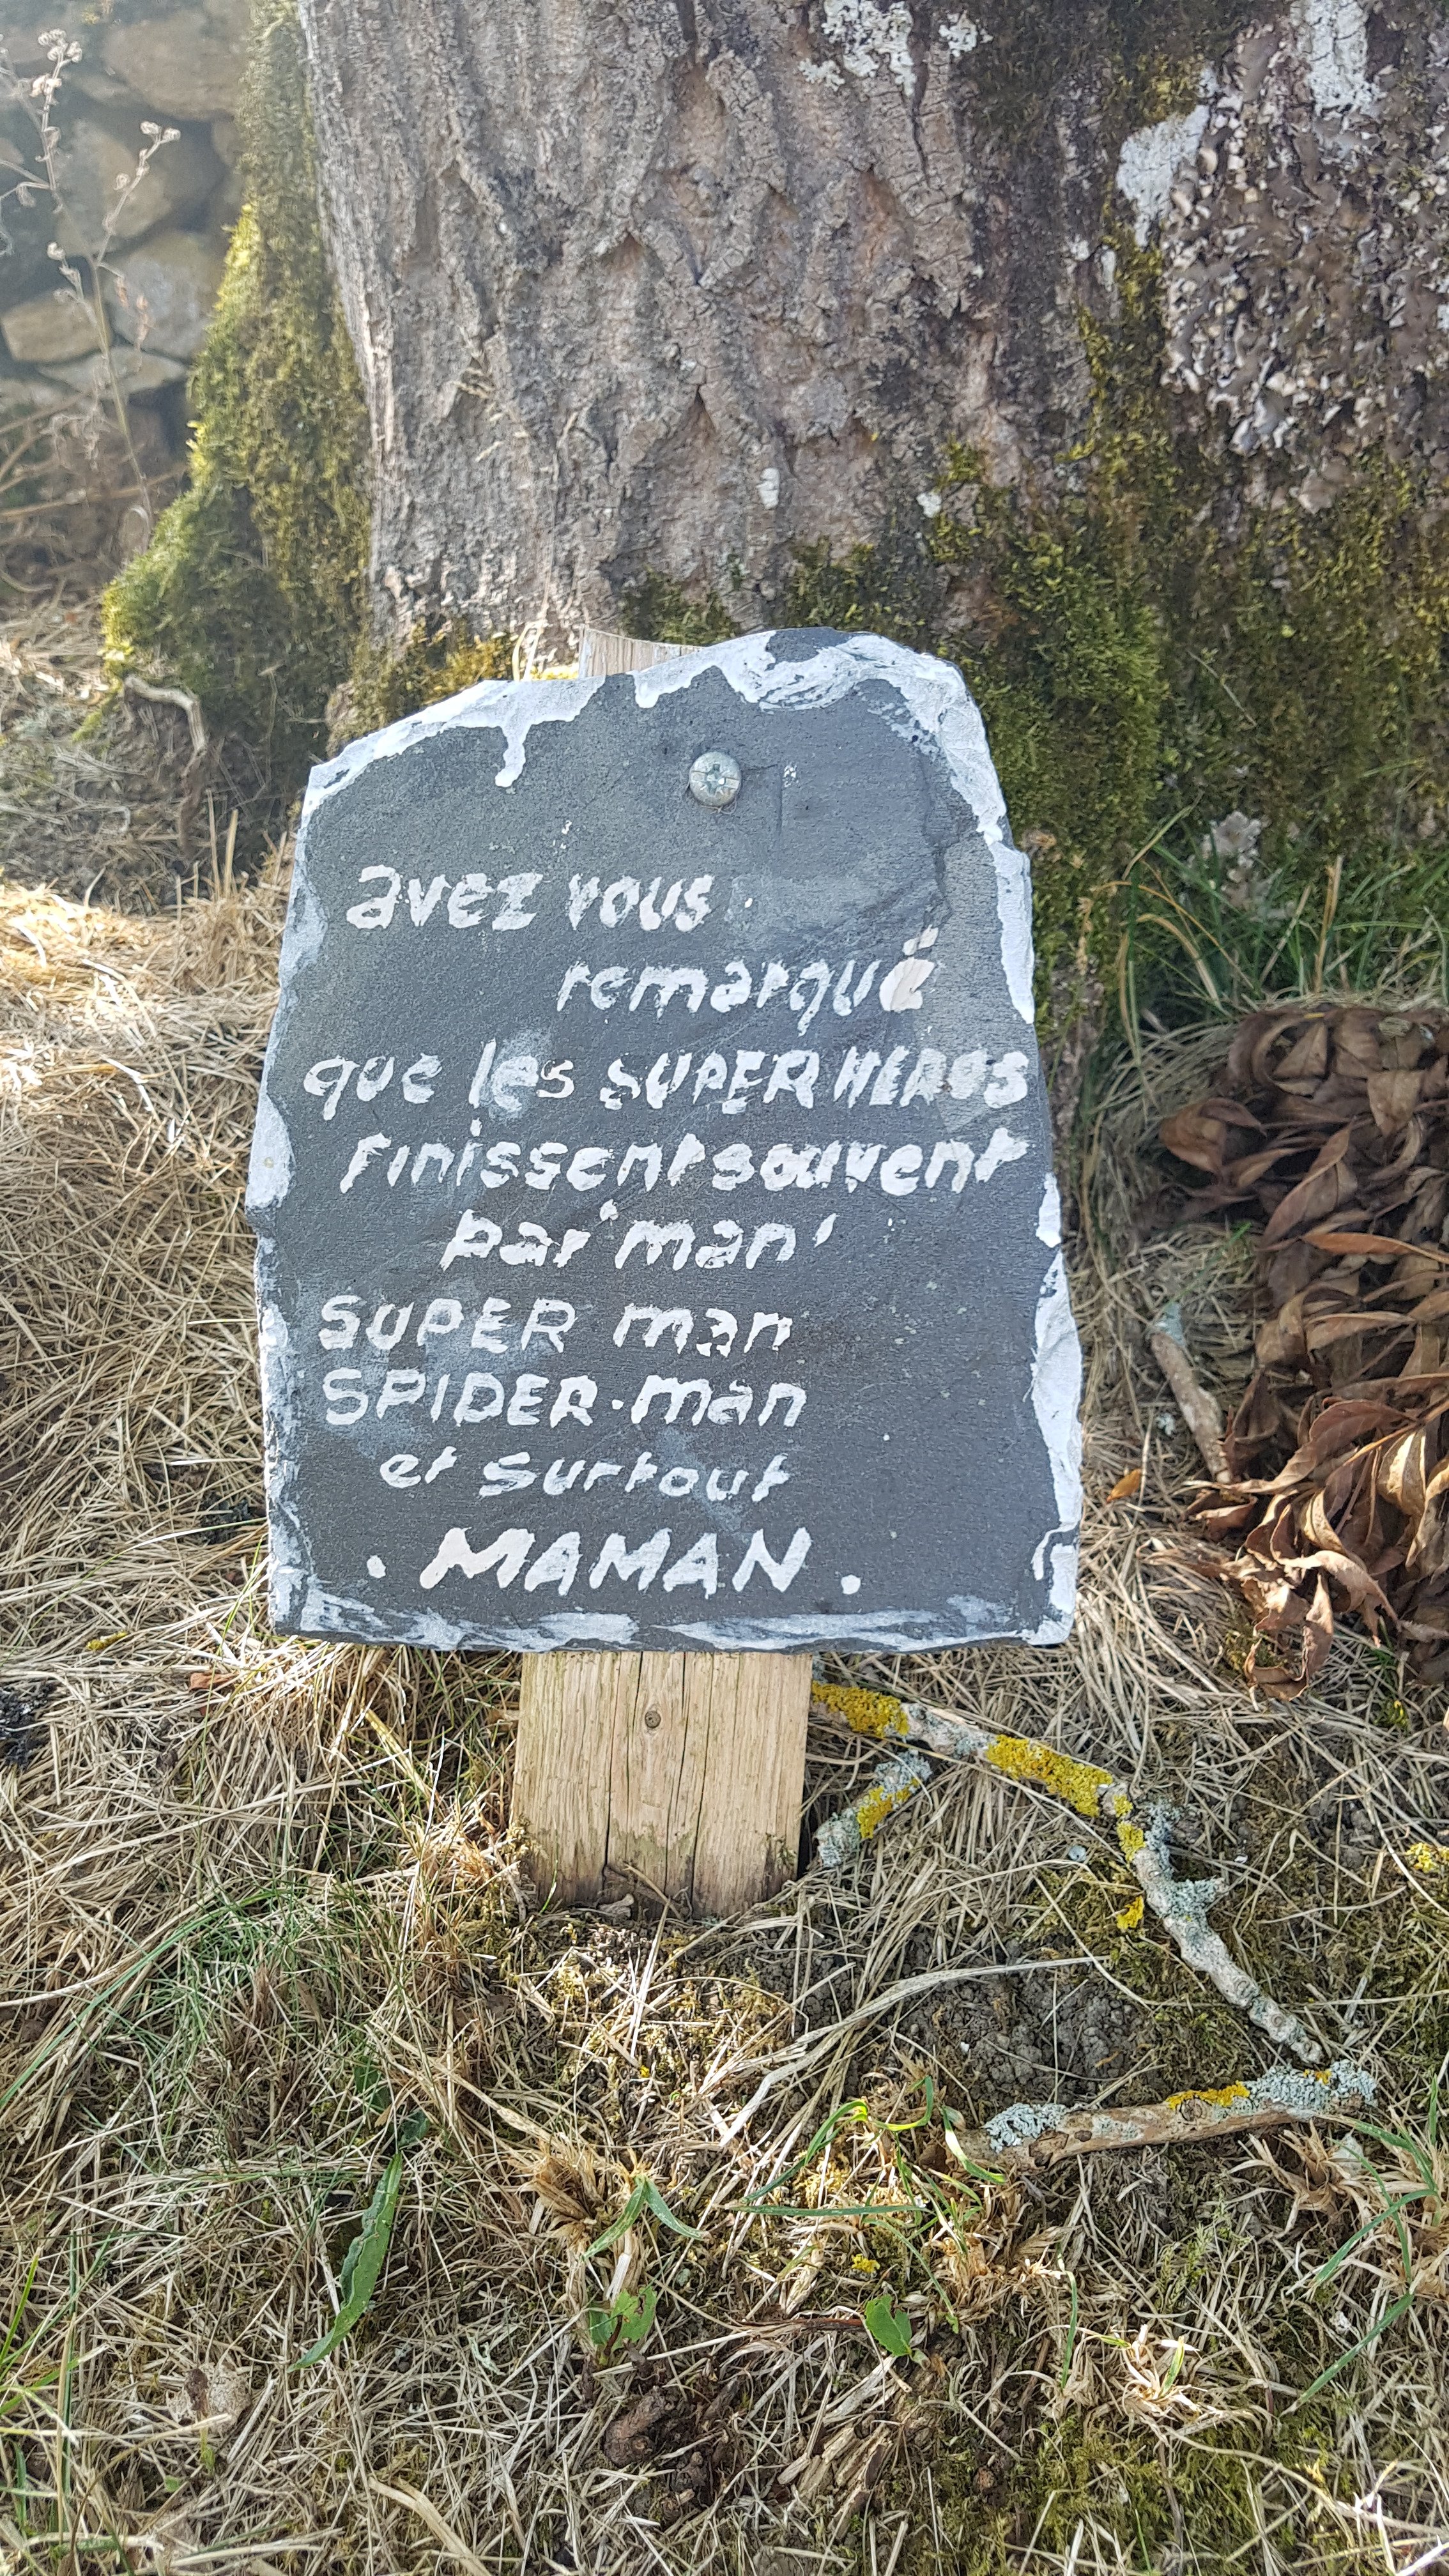 avez vous
remarqué
que les SUPER HEROS
finissent souvent
par 'man'
SUPER man
SPIDER-man
et surtout
. MAMAN .